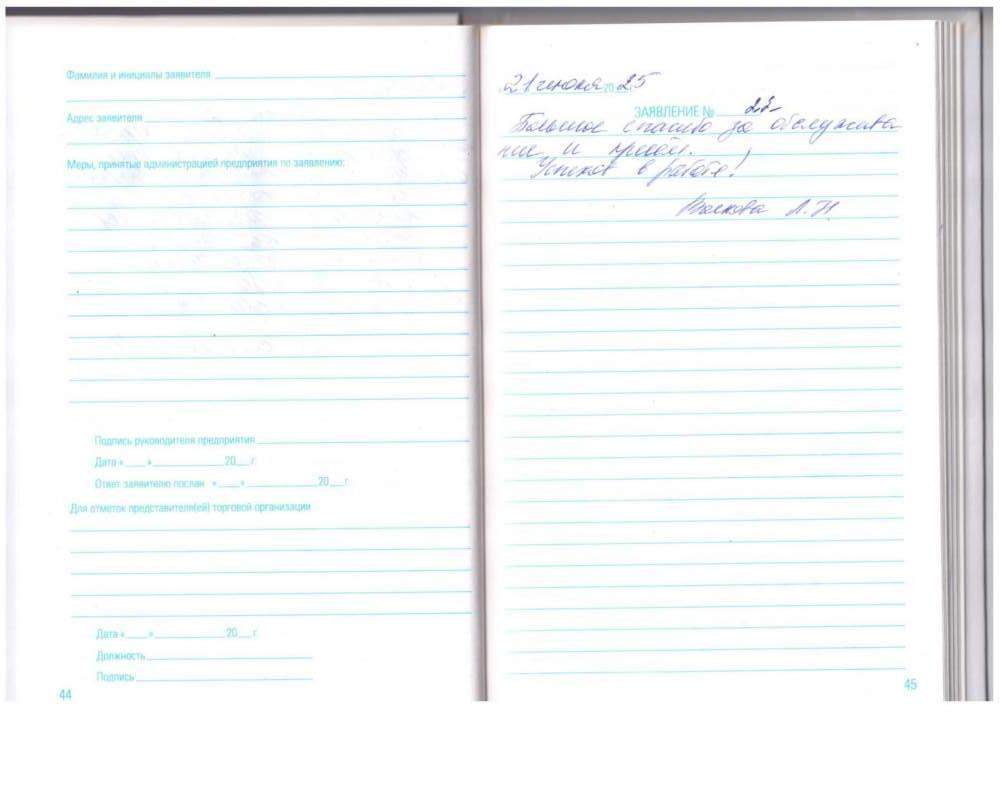 Фамилия и инициалы заявителя
Адрес заявителя
Меры, принятые администрацией предприятия по заявлению:
Подпись руководителя предприятия
Дата «____»____________20___г.
Ответ заявителю послан «____»____________20___г.
Для отметок представителя(ей) торговой организации
Дата «____»____________20___г.
Должность
Подпись
44
21 июня 2025
ЗАЯВЛЕНИЕ № 23
Большое спасибо за обслужива
ние и прием.
Успехов в работе!
Волкова Л.Н.
45